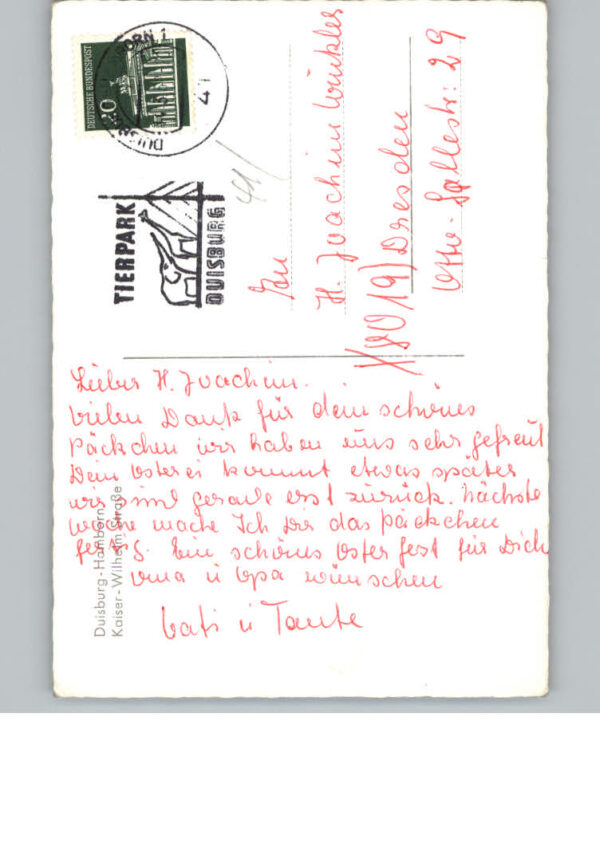 DEUTSCHE BUNDESPOST
20
TIERPARK
DUISBURG
An
H. Joachim Winkler
X8019) Dresden
Otto-Gallestr: 29
Lieber H. Joachim.
vielen Dank für dein schönes
Päckchen wir haben uns sehr gefreut
Dein Osterei kommt etwas später
wir sind gerade erst zurück. nächste
woche mache Ich Dir das päckchen
fertig. Ein schönes Osterfest für Dich
Oma u Opa wünschen
Vati u Tante
Duisburg-Hamborn,
Kaiser-Wilhelm-Straße